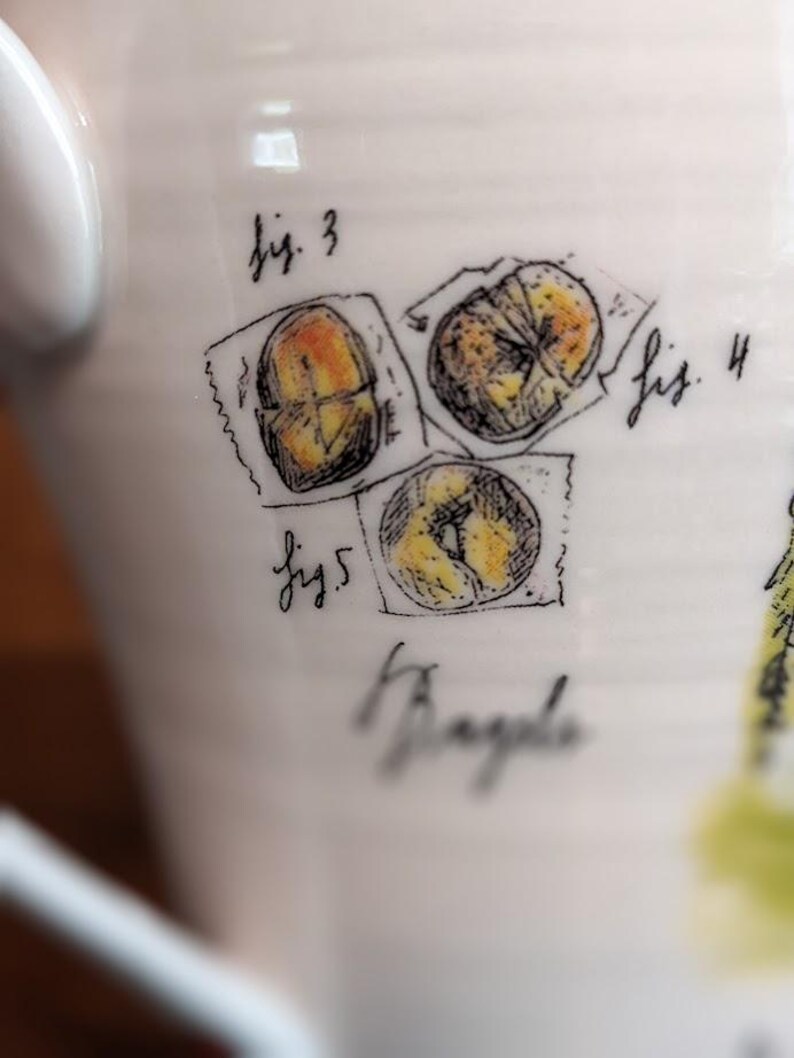 fig. 3
fig. 4
fig. 5
Bagels